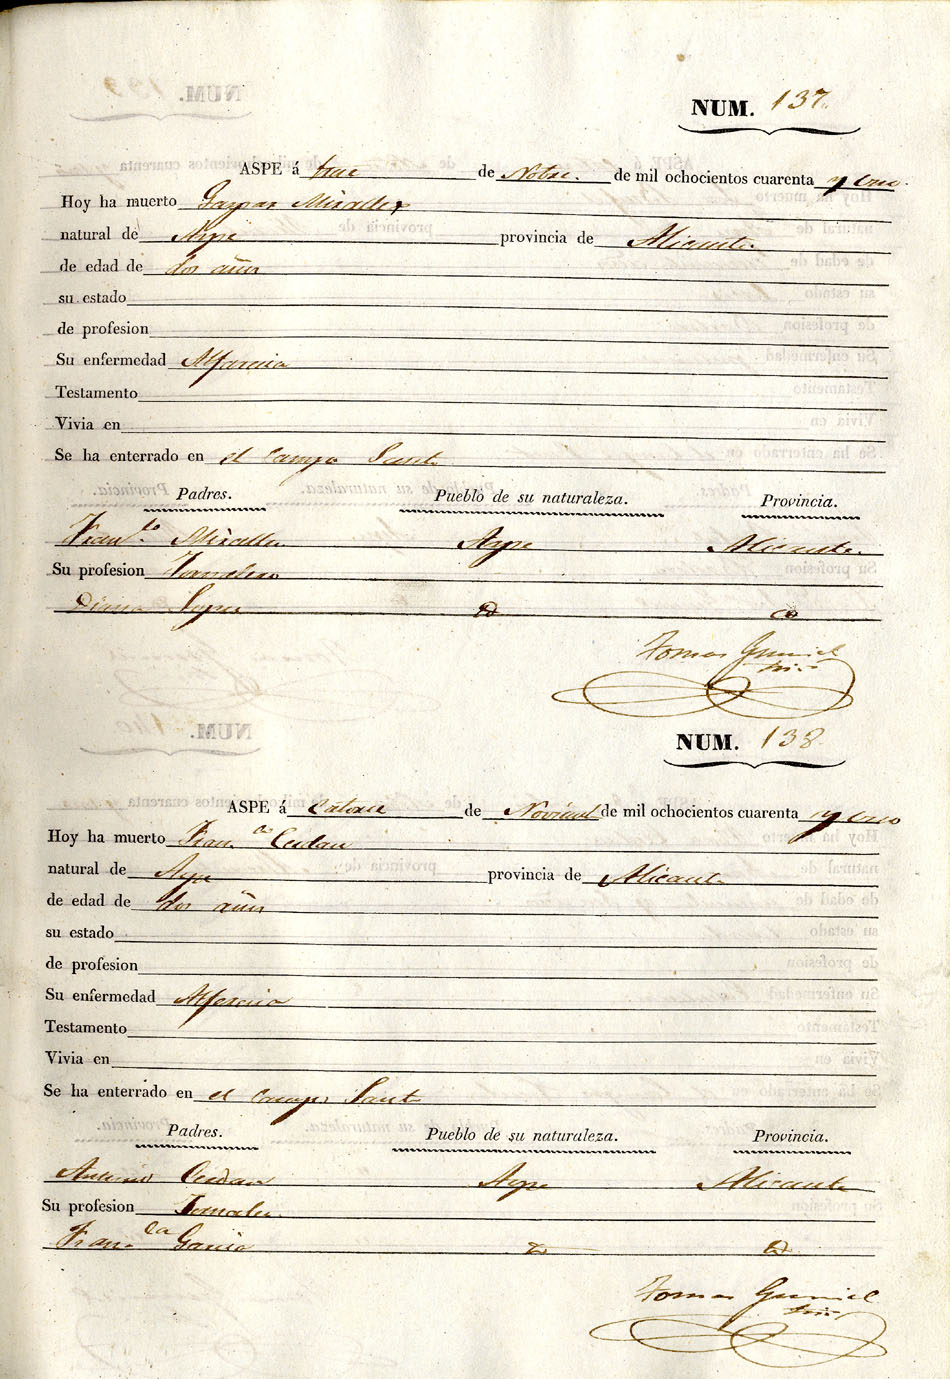 NUM. 137.
ASPE á trece de Nobre. de mil ochocientos cuarenta y uno.
Hoy ha muerto Gaspar Miralles
natural de Aspe provincia de Alicante.
de edad de dos años
su estado
de profesion
Su enfermedad Alferecia
Testamento
Vivia en
Se ha enterrado en el Campo Santo
Padres. Pueblo de su naturaleza. Provincia.
Franco. Miralles Aspe Alicante.
Su profesion Jornalero
Lopez id id
Tomas
NUM. 138.
ASPE á Catorce de de mil ochocientos cuarenta y uno
Hoy ha muerto Franco Cerdan
natural de Aspe provincia de Alicante
de edad de dos años
su estado
de profesion
Su enfermedad Alferecia
Testamento
Vivia en
Se ha enterrado en el Campo Santo
Padres. Pueblo de su naturaleza. Provincia.
Antonio Cerdan Aspe Alicante
Su profesion Jornalero
Franca Garcia id id
Tomas